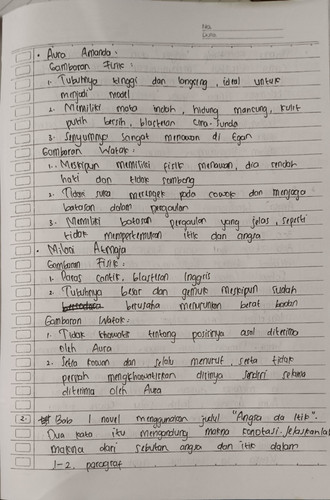 No.
Date.
• Aura Amanda:
Gambaran Fisik:
1. Tubuhnya tinggi dan langsing, ideal untuk
menjadi model
2. Memiliki mata indah, hidung mancung, kulit
putih bersih, blasteran Cina-Sunda
3. Senyumnya sangat menawan di Egan
Gambaran Watak:
1. Meskipun memiliki fisik menawan, dia rendah
hati dan tidak sombong
2. Tidak suka pada cowok dan menjaga
batasan dalam pergaulan
3. Memiliki batasan pergaulan yang jelas, seperti
tidak mempertemukan itik dan angsa
• Milani Atmaja
Gambaran Fisik:
1. Paras cantik, blasteran Inggris
2. Tubuhnya besar dan gemuk meskipun sudah
berusaha menurunkan berat badan
Gambaran Watak:
1. Tidak khawatir tentang posisinya asal diterima
oleh Aura
2. Setia kawan dan selalu menurut, serta tidak
pernah mengkhawatirkan dirinya sendiri selama
diterima oleh Aura
2. Bab 1 novel menggunakan judul "Angsa dan Itik".
Dua kata itu mengandung makna konotasi. Jelaskanlah
makna dari sebutan angsa dan itik dalam
1-2 paragraf